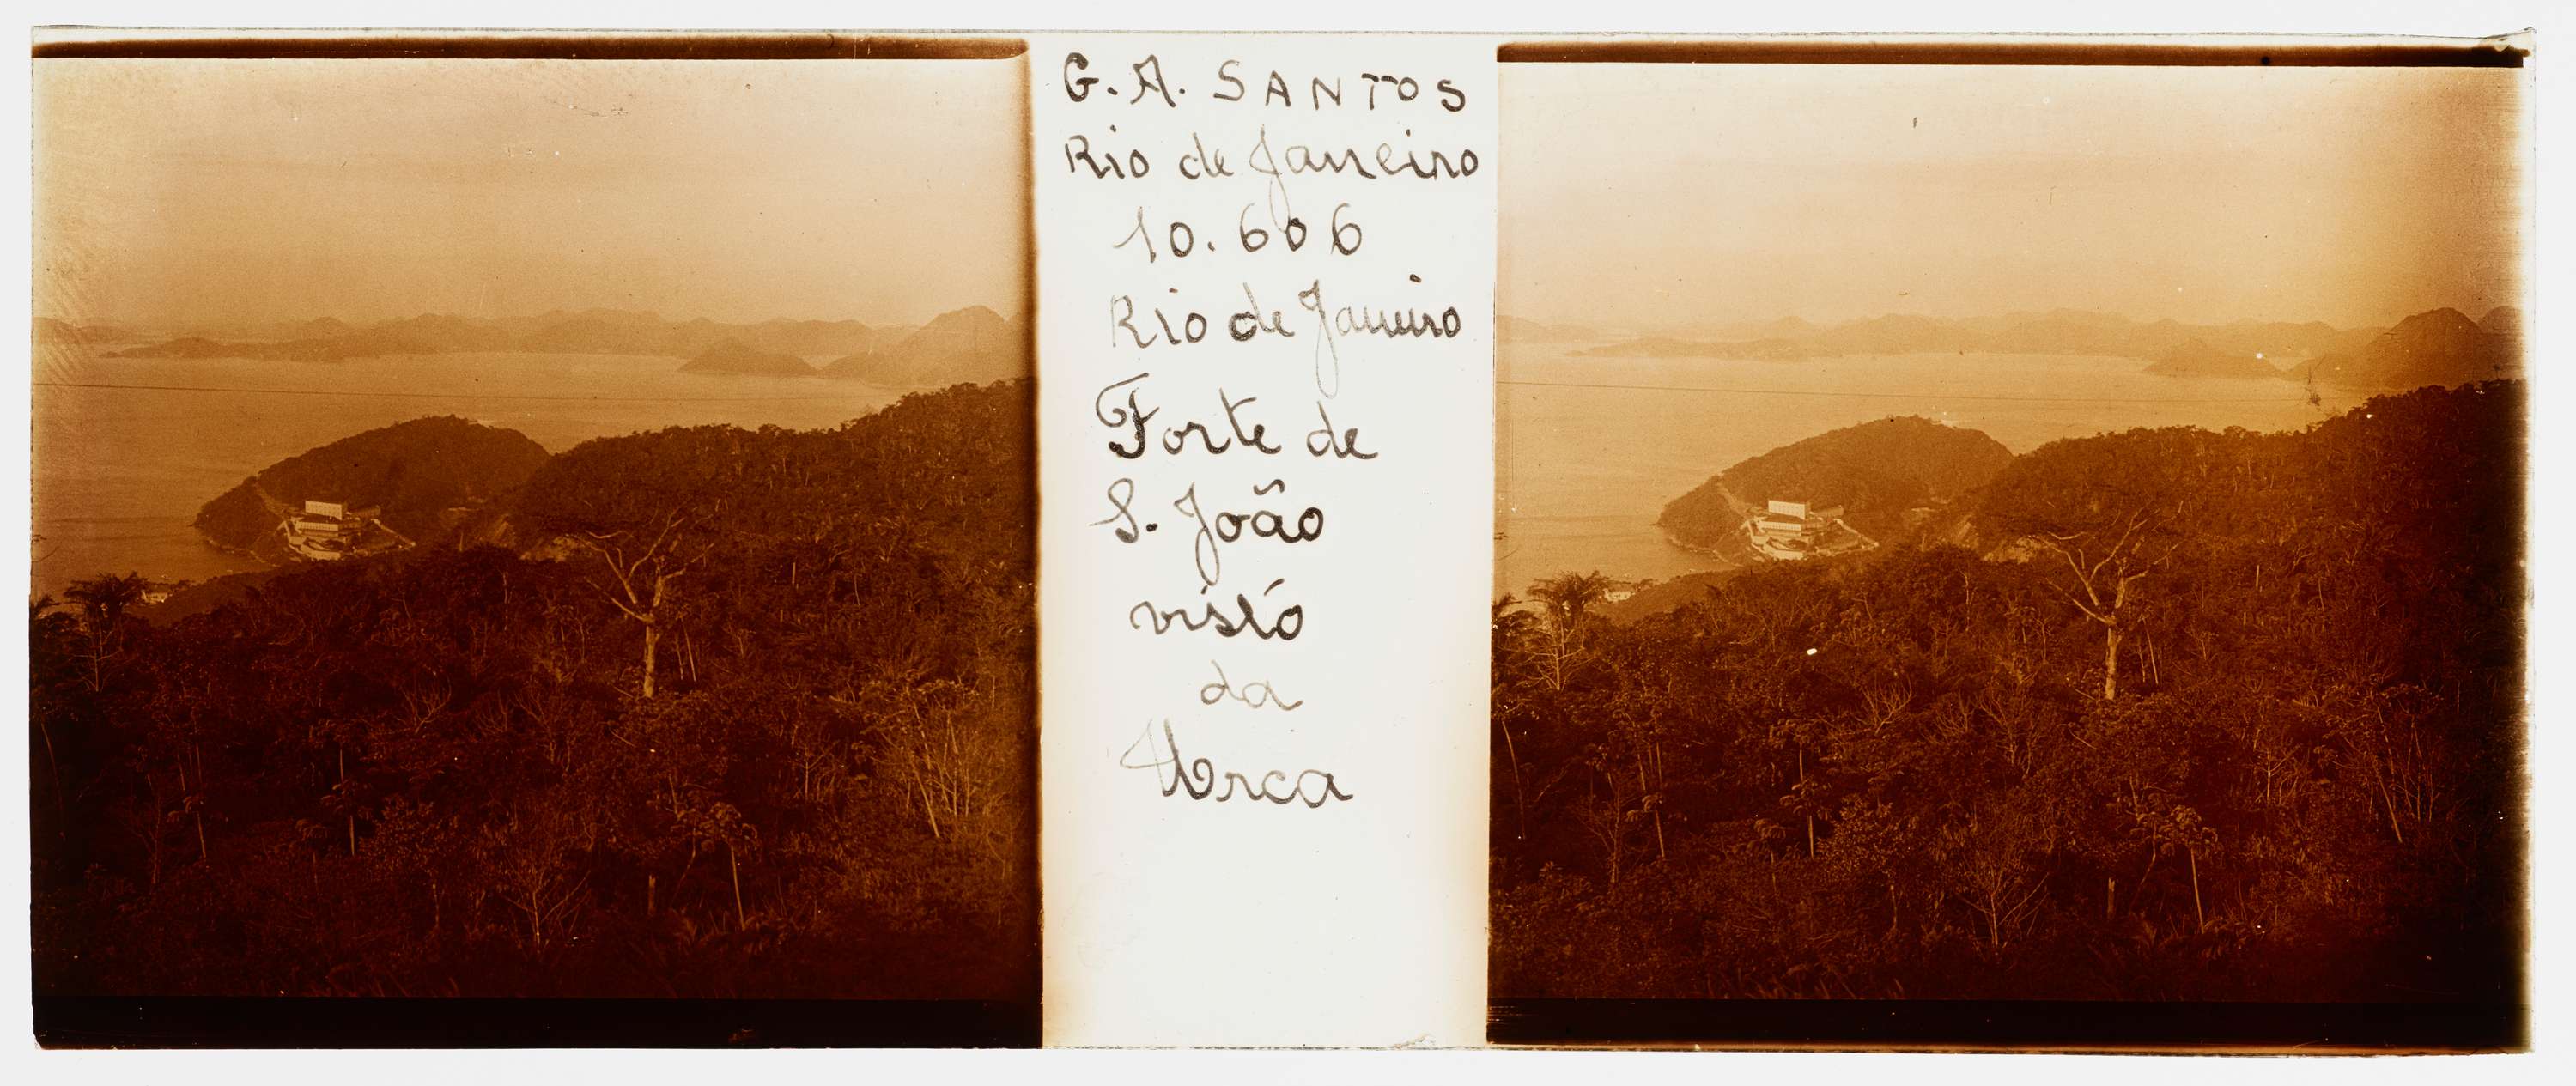 G. A. SANTOS
Rio de Janeiro
10.606
Rio de Janeiro
Forte de
S. João
visto
da
Urca